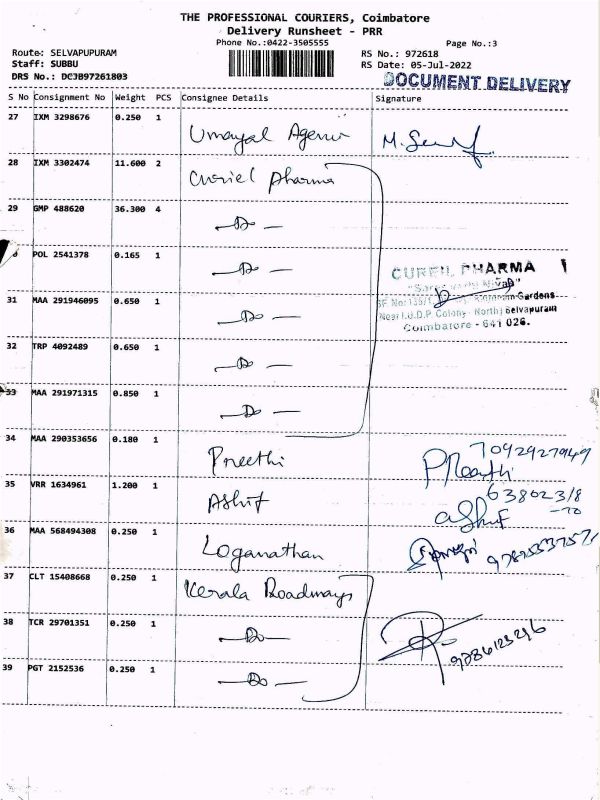 THE PROFESSIONAL COURIERS, Coimbatore
Delivery Runsheet - PRR
Phone No.:0422-3505555
Page No.:3
Route: SELVAPUPURAM
RS No.: 972618
Staff: SUBBU
RS Date: 05-Jul-2022
DRS No.: DCJB97261803
DOCUMENT DELIVERY
S No Consignment No Weight PCS Consignee Details Signature
27 IXM 3298676 0.250 1 Umayal
28 IXM 3302474 11.600 2 Curiel Pharma
29 GMP 488620 36.300 4 -Do-
POL 2541378 0.165 1 -Do-
CUREIL PHARMA
31 MAA 291946095 0.650 1 -Do-
Gardens
Near I.U.D.P. Colony North) Selvapuram
Coimbatore - 641 026.
32 TRP 4092489 0.650 1 -Do-
33 MAA 291971315 0.850 1 -Do-
34 MAA 290353656 0.180 1 Preethi Preethi 7092927949
35 VRR 1634961 1.200 1 Ashif Ashif 638023/8
-70
36 MAA 568494308 0.250 1 Loganathan
37 CLT 15408668 0.250 1 Kerala Roadways
38 TCR 29701351 0.250 1 -Do-
39 PGT 2152536 0.250 1 -Do-